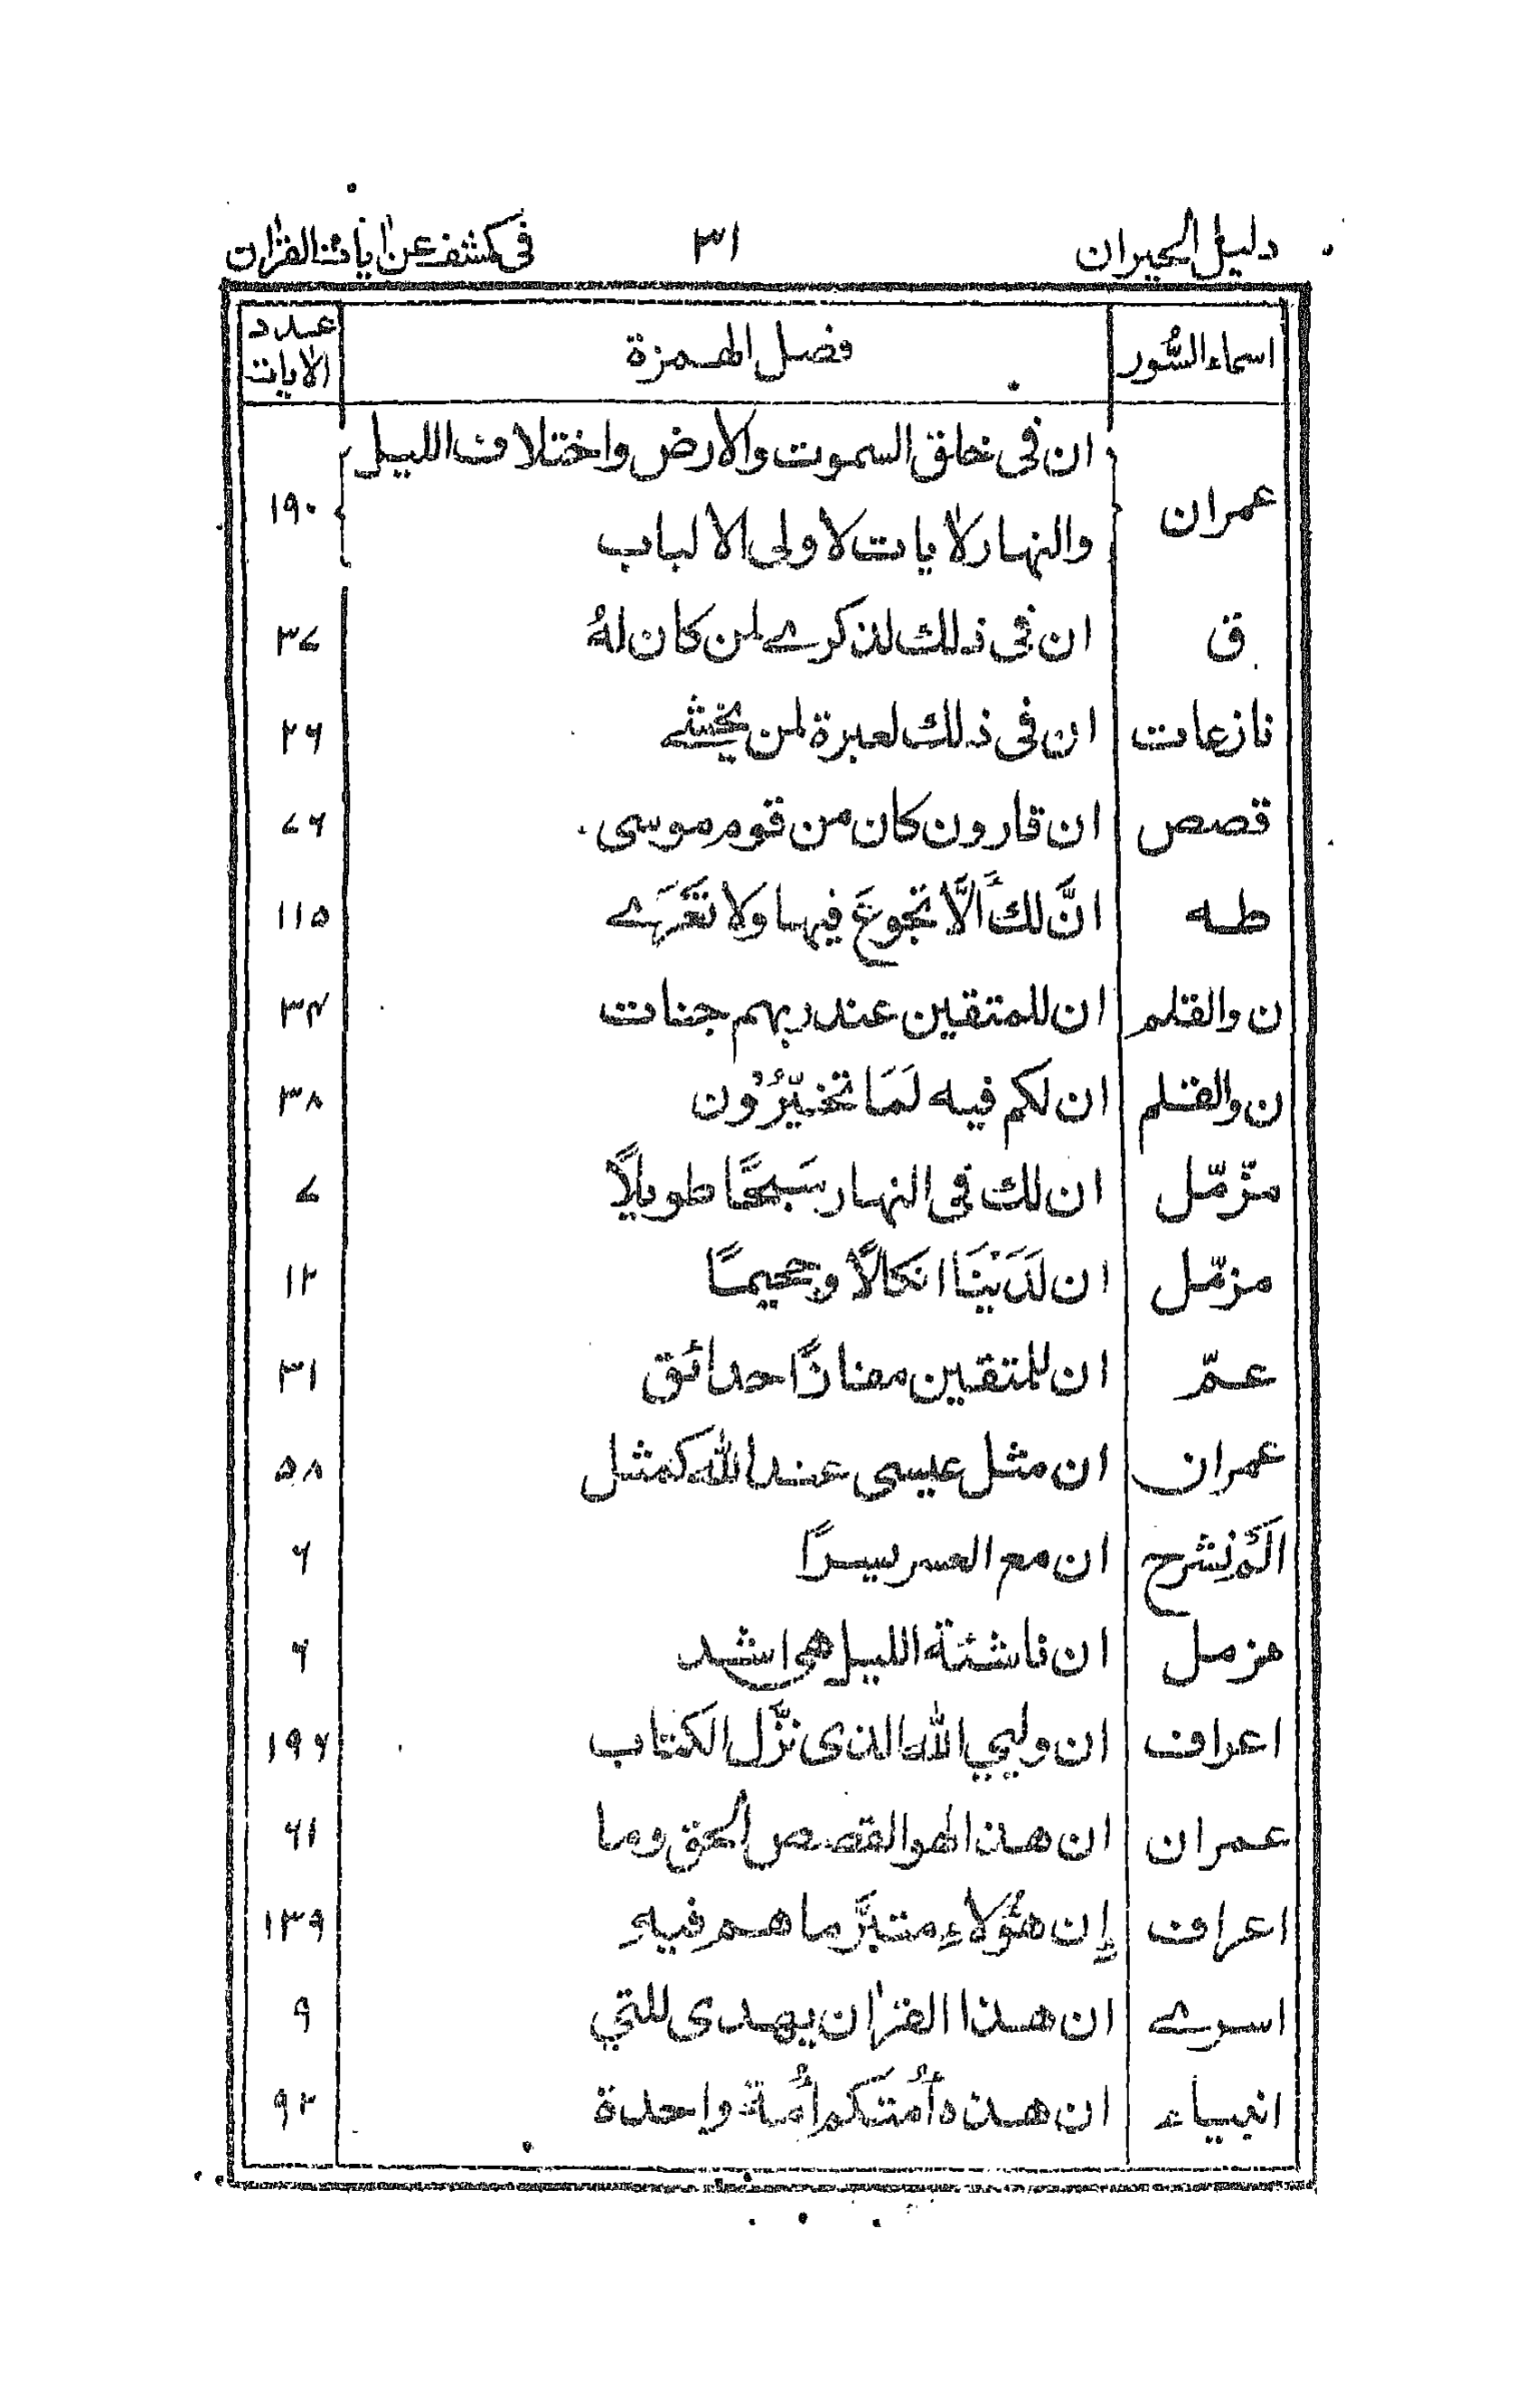 دليل الحيران ۳۱ فى كشف عن اٰيات القرٰان
اسماء السُّور فصل الهمزة عدد الايات
عمران ان فى خلق السموت والارض واختلاف الليل
والنهار لاٰيات لاولى الالباب ۱۹۰
ق ان فى ذلك لذكرے لمن كان لهُ ۳۷
نازعات ان فى ذلك لعبرة لمن يخشے ۲۶
قصص ان قارون كان من قوم موسى ۷۶
طه انَّ لكَ اَلَّا تجوعَ فيها ولا تَعْرَےٰ ۱۱۵
ن والقلم ان للمتقين عند ربهم جنات ۳۴
ن والقلم ان لكم فيه لَمَا تخيَّرُوْن ۳۸
مزّمّل ان لك فى النهار سَبحًا طويلًا ۷
مزمّل ان لَدَيْنَا انكالًا وجحيمًا ۱۲
عمّ ان للمتقين مفازًا حدائق ۳۱
عمران ان مثل عيسى عند الله كمثل ۵۸
الَمْ نشرح ان مع العسر يسرًا ۶
مزمل ان ناشئة الليل هى اشد ۶
اعراف ان وليي الله الذى نزَّل الكتاب ۱۹۶
عمران ان هذا لهو القصص الحق وما ۶۱
اعراف اِن هٰؤلاءِ متبَّر ما هم فيهِ ۱۳۹
اسرے ان هذا القرٰان يهدى للتي ۹
انبياء ان هذه اُمتكم اُمة واحدة ۹۲